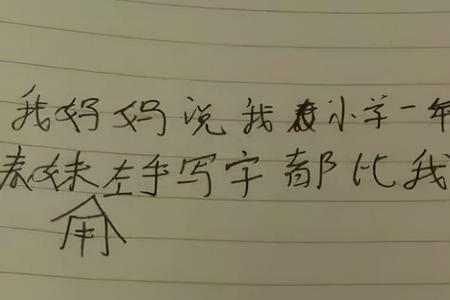 我妈妈说我小学一年
表妹左手写字都比我
用